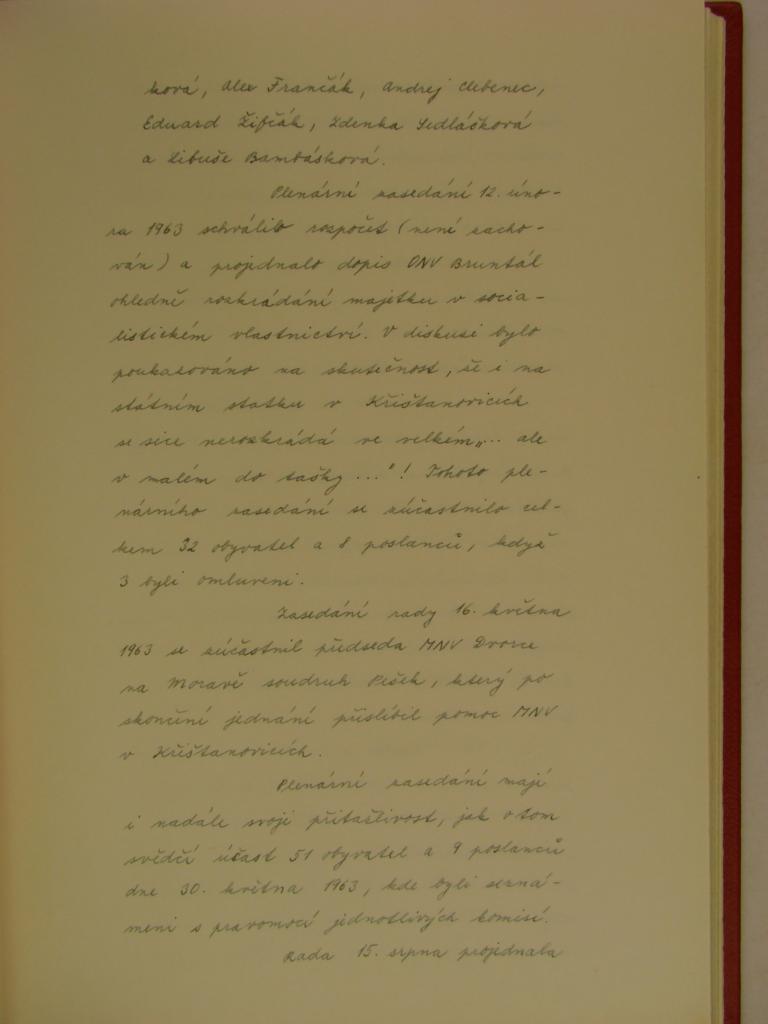 ková, Alex Frančák, Andrej Clebenec,
Eduard Žifčák, Zdenka Sedláčková
a Libuše Bambásková.
Plenární zasedání 12. úno-
ra 1963 schválilo rozpočet (není zacho-
ván) a projednalo dopis ONV Bruntál
ohledně rozkrádání majetku v socia-
listickém vlastnictví. V diskusi bylo
poukazováno na skutečnost, že i na
státním statku v Křišťanovicích
se sice nerozkrádá ve velkém „... ale
v malém do tašky ..."! Tohoto ple-
nárního zasedání se zúčastnilo cel-
kem 32 obyvatel a 8 poslanců, když
3 byli omluveni.
Zasedání rady 16. května
1963 se zúčastnil předseda MNV Dvorce
na Moravě soudruh Pešek, který po
skončení jednání přislíbil pomoc MNV
v Křišťanovicích.
Plenární zasedání mají
i nadále svoji přitažlivost, jak o tom
svědčí účast 51 obyvatel a 9 poslanců
dne 30. května 1963, kde byli sezná-
meni s pravomocí jednotlivých komisí.
Rada 15. srpna projednala